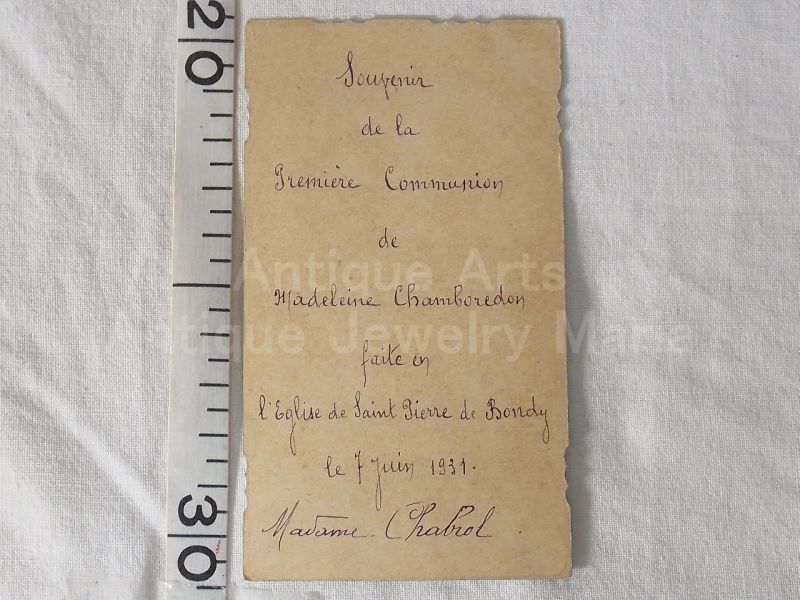 20
Souvenir
de la
Première Communion
de
Madeleine Chamboredon
faite en
l'Eglise de Saint Pierre de Bondy
le 7 Juin 1931.
Madame Chabrol.
30
Antique Arts
Antique Jewelry Maria